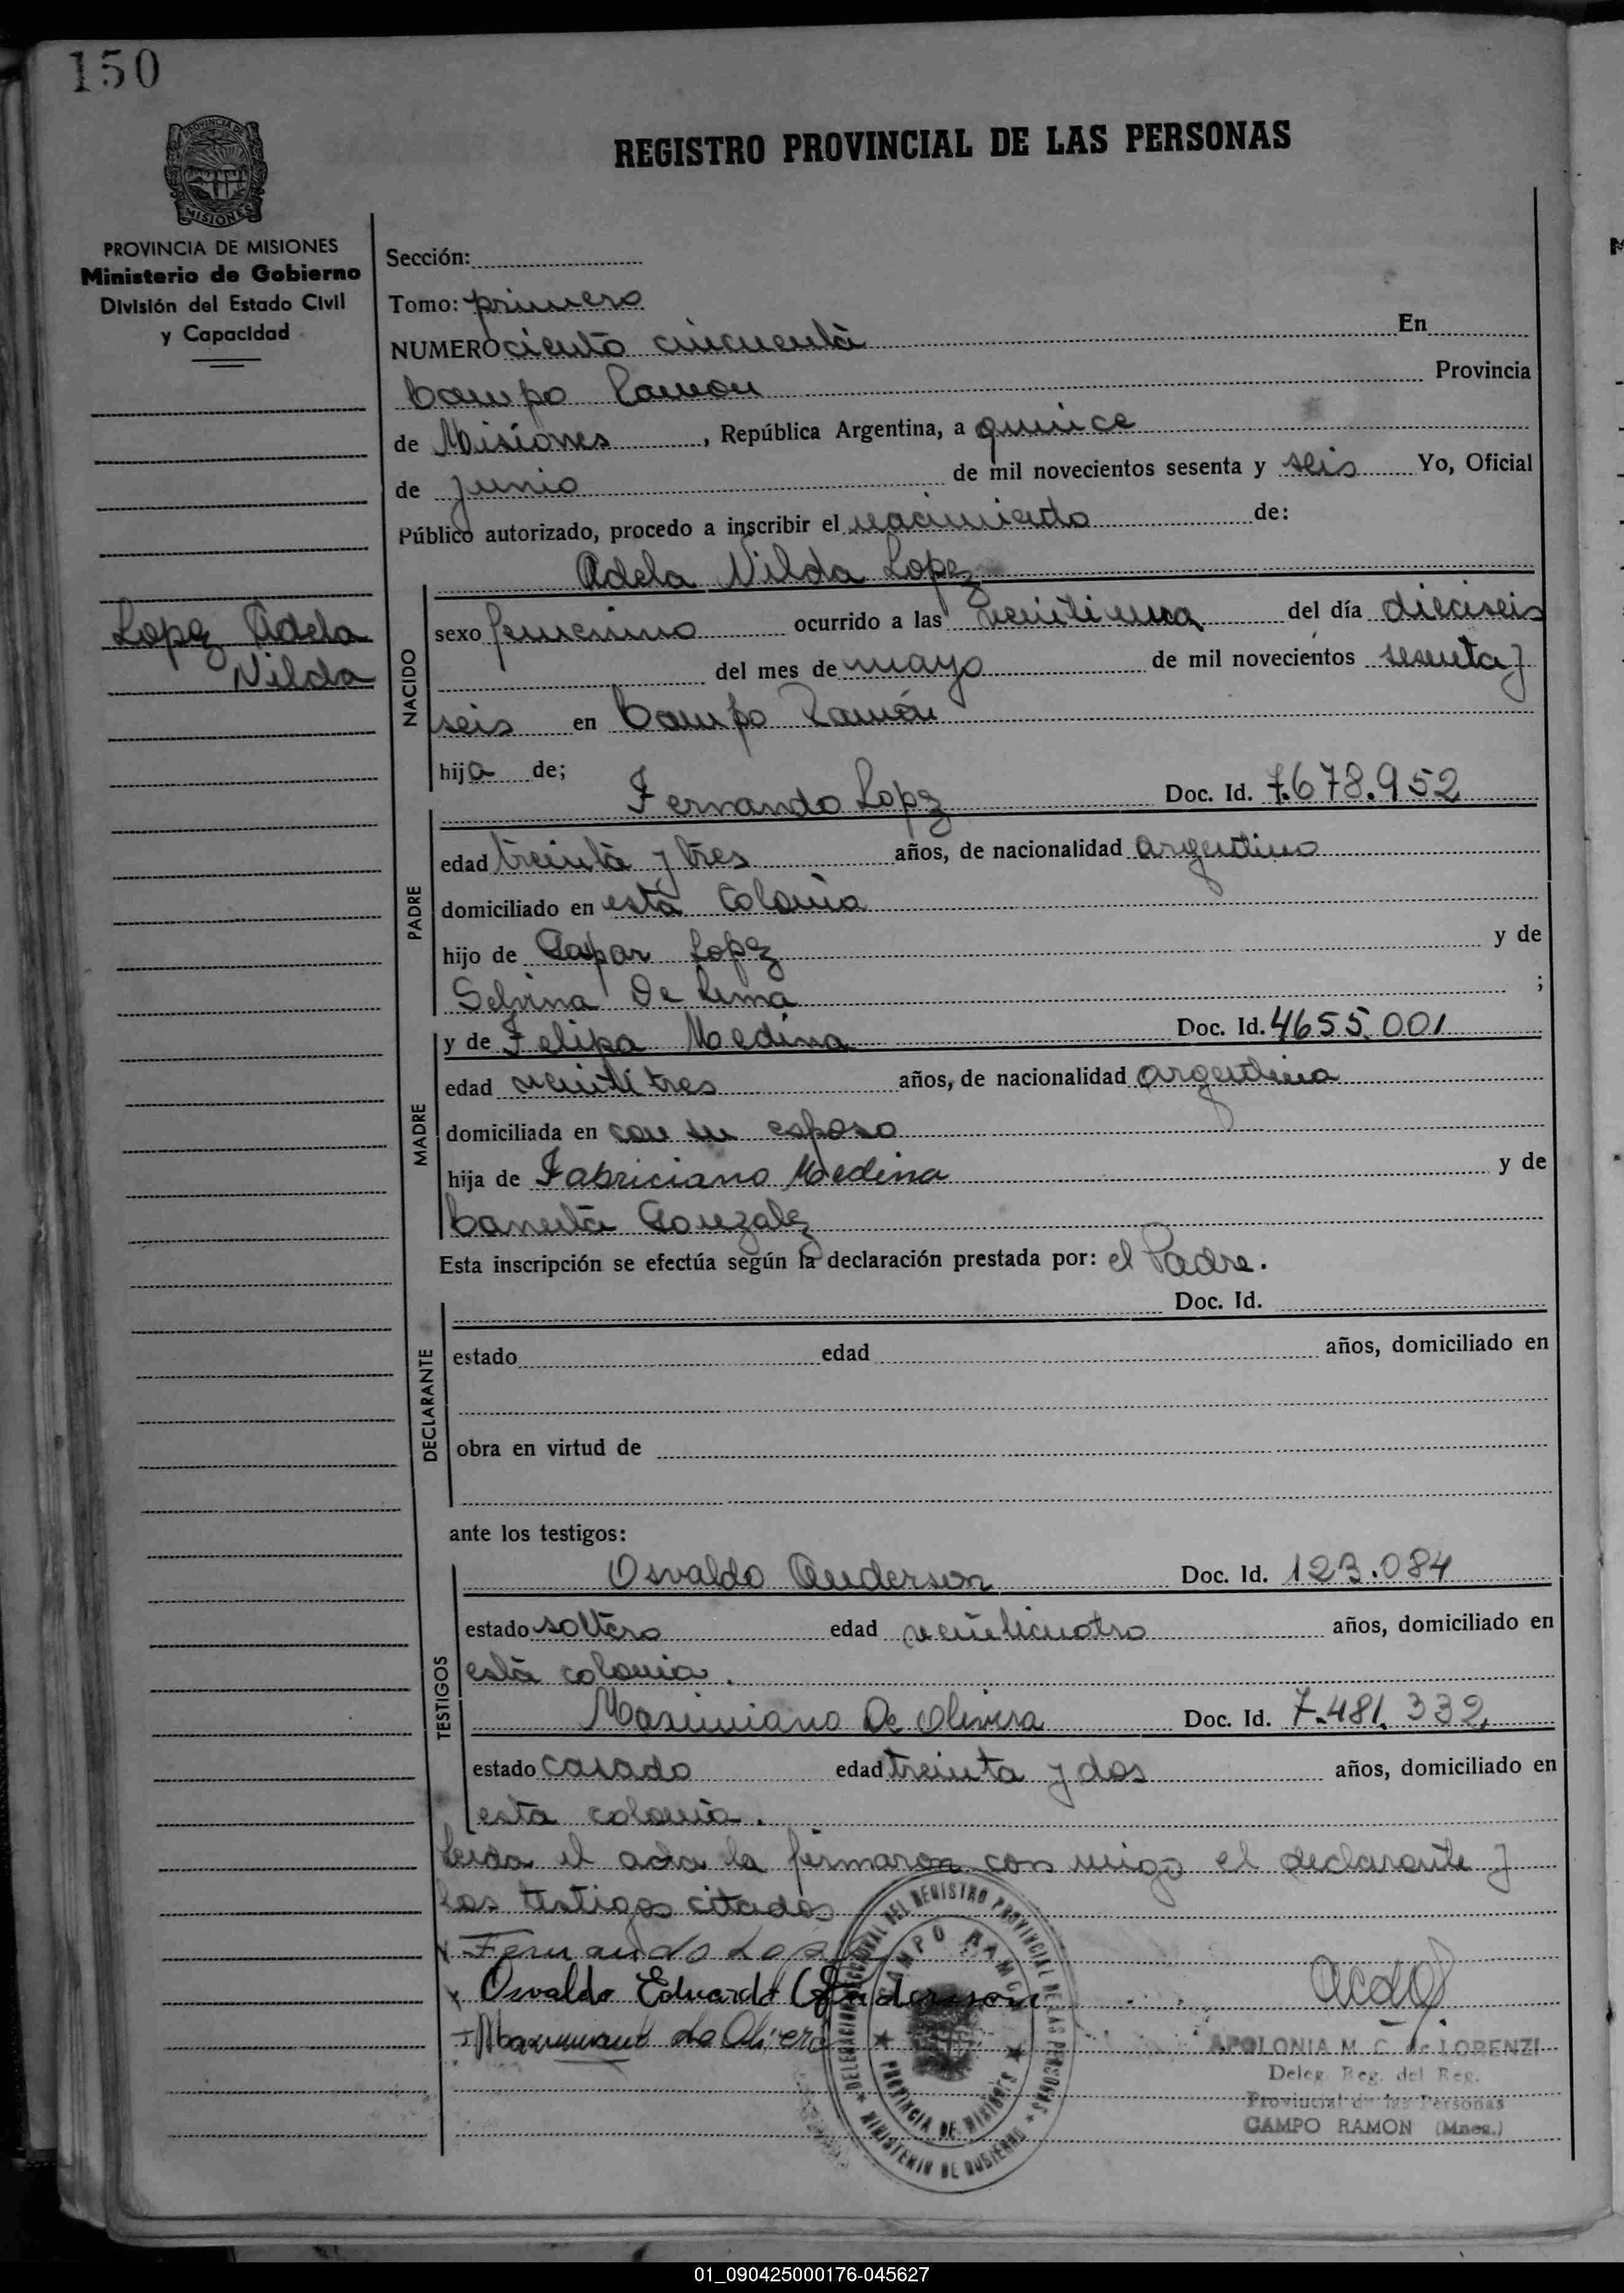 150
REGISTRO PROVINCIAL DE LAS PERSONAS
PROVINCIA DE MISIONES
MISIONES
PROVINCIA DE MISIONES
Ministerio de Gobierno
División del Estado Civil
y Capacidad
Lopez Adela
Nilda
Sección:
Tomo: primero
NUMERO ciento cincuenta En
Campo Ramon Provincia
de Misiones, República Argentina, a quince
de junio de mil novecientos sesenta y seis Yo, Oficial
Público autorizado, procedo a inscribir el nacimiento de:
Adela Nilda Lopez
NACIDO
sexo femenino ocurrido a las veintiuna del día dieciseis
del mes de mayo de mil novecientos sesenta y
seis en Campo Ramón
hija de;
PADRE
Fernando Lopez Doc. Id. 7.678.952
edad treinta y tres años, de nacionalidad argentino
domiciliado en esta Colonia
hijo de Gaspar Lopez y de
Selvina De Lima ;
MADRE
y de Felipa Medina Doc. Id. 4655.001
edad veinti tres años, de nacionalidad argentina
domiciliada en con su esposo
hija de Fabriciano Medina y de
Gonzalez
Esta inscripción se efectúa según la declaración prestada por: el Padre.
DECLARANTE
Doc. Id.
estado edad años, domiciliado en
obra en virtud de
ante los testigos:
TESTIGOS
Osvaldo Anderson Doc. Id. 123.084
estado soltero edad veinticuatro años, domiciliado en
esta colonia.
Maximiano De Olivera Doc. Id. 7.481.332
estado casado edad treinta y dos años, domiciliado en
esta colonia.
Leida el acta la firmaron con migo el declarante y
los testigos citados
Fernando Lopez
Osvaldo Eduardo Andersson
Maximiano de Olivera
DELEGACION SECCIONAL DEL REGISTRO PROVINCIAL DE LAS PERSONAS
MINISTERIO DE GOBIERNO
CAMPO RAMON
PROVINCIA DE MISIONES
APOLONIA M. C. de LORENZI
Deleg. Reg. del Reg.
Provincial de las Personas
CAMPO RAMON (Mnes.)
01_090425000176-045627